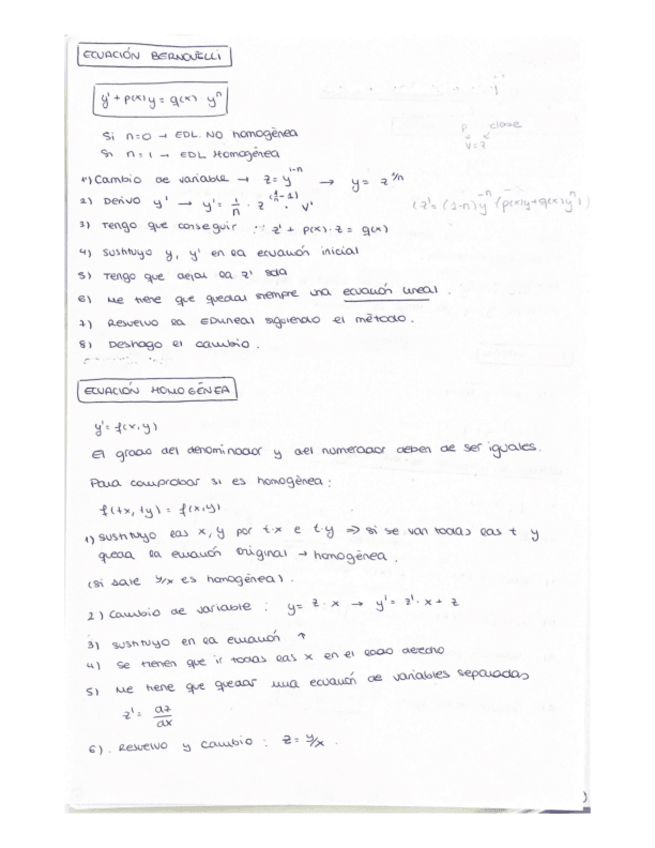 ECUACIÓN BERNOUELLI
y' + p(x) y = q(x) · yⁿ
Si n=0 → EDL. NO homogènea
Si n=1 → EDL Homogènea
p clase
v=z
1) Cambio de variable → z = y^(1-n) → y = z^(1/n)
2) Derivo y' → y' = 1/n · z^(1/n - 1) · v' (z' = (1-n) y^-n (p(x)y + q(x)yⁿ)
3) Tengo que conseguir ∵ z' + p(x)·z = q(x)
4) Sustituyo y, y' en la ecuación inicial
5) Tengo que dejar la z' sola
6) Me tiene que quedar siempre una ecuación lineal.
7) Resuelvo la EDLineal siguiendo el método.
8) Deshago el cambio.
ECUACIÓN HOMOGÉNEA
y' = f(x,y)
El grado del denominador y del numerador deben de ser iguales.
Para comprobar si es homogènea:
f(tx, ty) = f(x,y)
1) Sustituyo las x, y por t·x e t·y => si se van todas las t y
queda la ecuación original → homogènea.
(Si sale y/x es homogènea).
2) Cambio de variable : y = z · x → y' = z' · x + z
3) Sustituyo en la ecuación ↑
4) Se tienen que ir todas las x en el lado derecho
5) Me tiene que quedar una ecuación de variables separadas
z' = dz/dx
6). Resuelvo y cambio : z = y/x.